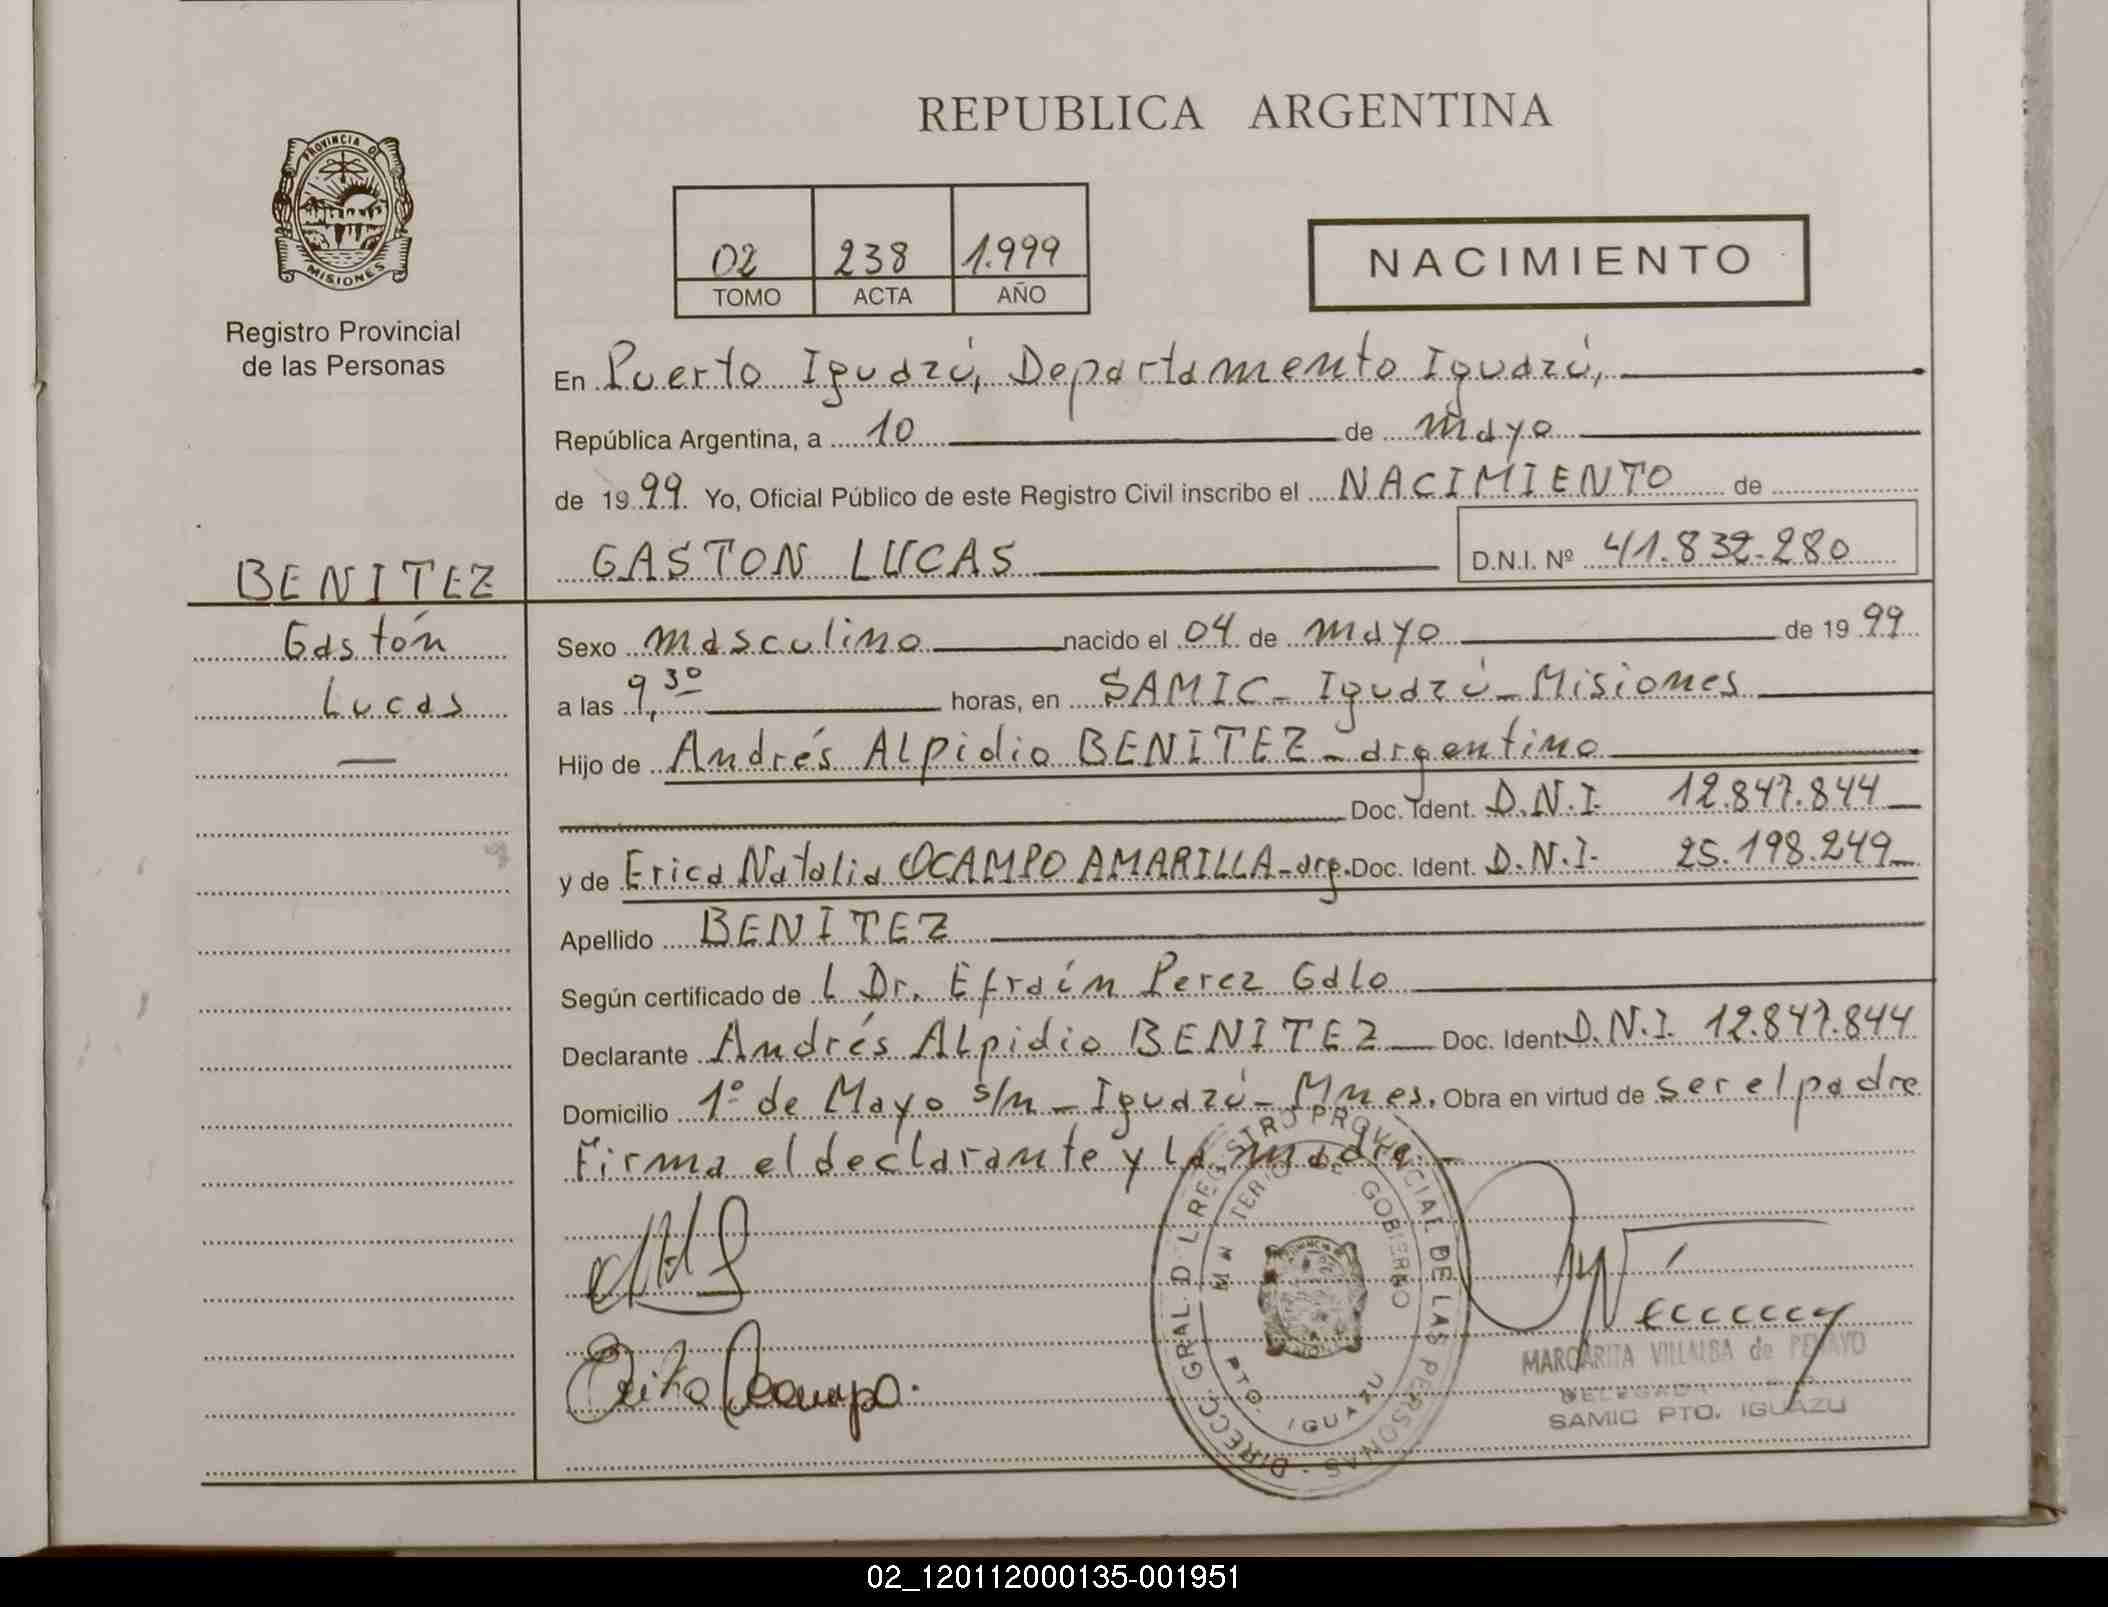 REPUBLICA ARGENTINA
PROVINCIA DE
MISIONES
Registro Provincial
de las Personas
02 238 1.999
TOMO ACTA AÑO
NACIMIENTO
En Puerto Iguazú, Departamento Iguazú,
República Argentina, a 10 de mayo
de 1999. Yo, Oficial Público de este Registro Civil inscribo el NACIMIENTO de
GASTON LUCAS D.N.I. Nº 41.832.280
BENITEZ
Gastón
Lucas
Sexo masculino nacido el 04 de mayo de 1999
a las 9,30 horas, en SAMIC - Iguazú - Misiones
Hijo de Andrés Alpidio BENITEZ - argentino
Doc. Ident. D.N.I. 12.847.844
y de Erica Natalia OCAMPO AMARILLA - arg. Doc. Ident. D.N.I. 25.198.249
Apellido BENITEZ
Según certificado de l Dr. Efraín Perez Galo
Declarante Andrés Alpidio BENITEZ Doc. Ident D.N.I. 12.847.844
Domicilio 1º de Mayo s/n - Iguazú - Mnes. Obra en virtud de ser el padre
Firma el declarante y la madre.
DIRECC. GRAL. DEL REGISTRO PROVINCIAL DE LAS PERSONAS
MINISTERIO DE GOBIERNO
PTO. IGUAZU
Ocampo.
MARGARITA VILLALBA de PENAYO
SAMIC PTO. IGUAZU
02_120112000135-001951